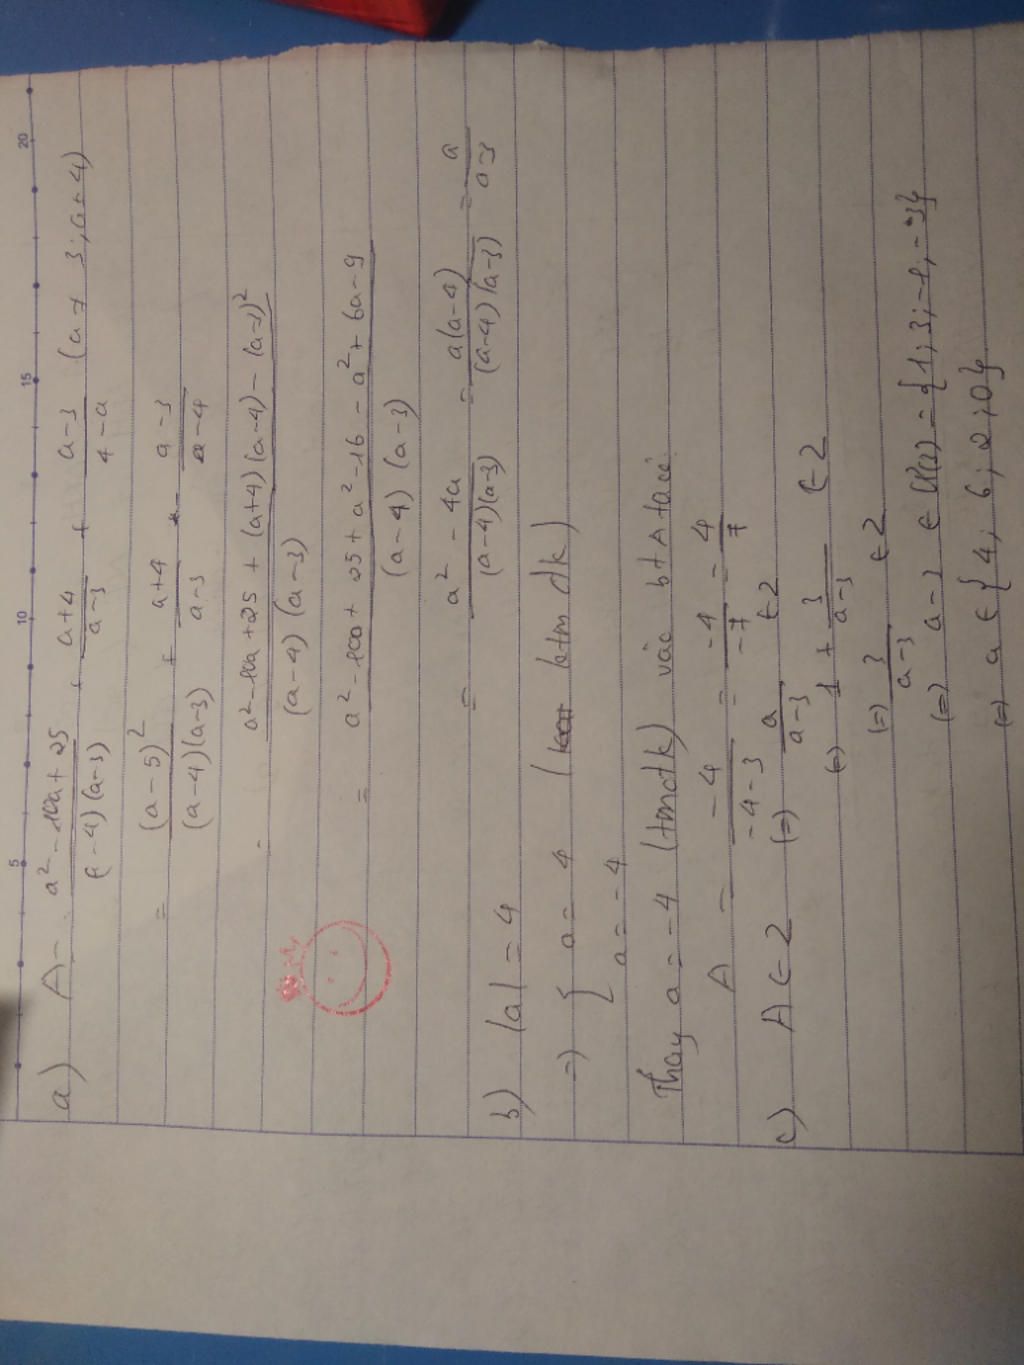 5 10 15 20
a) A = a² - 10a + 25 / (a-4)(a-3) + a+4 / a-3 + a-3 / 4-a (a ≠ 3; a ≠ 4)
= (a-5)² / (a-4)(a-3) + a+4 / a-3 - a-3 / a-4
= a² - 10a + 25 + (a+4)(a-4) - (a-3)² / (a-4)(a-3)
= a² - 10a + 25 + a² - 16 - a² + 6a - 9 / (a-4)(a-3)
= a² - 4a / (a-4)(a-3) = a(a-4) / (a-4)(a-3) = a / a-3
b) |a| = 4
=> [ a = 4 (ktm đk)
a = -4
Thay a = -4 (tmđk) vào bt A ta có:
A = -4 / -4-3 = -4 / -7 = 4 / 7
c) A ∈ Z (=) a / a-3 ∈ Z
(=) 1 + 3 / a-3 ∈ Z
(=) 3 / a-3 ∈ Z
(=) a-3 ∈ Ư(3) = {1; 3; -1; -3}
(=) a ∈ {4; 6; 2; 0}